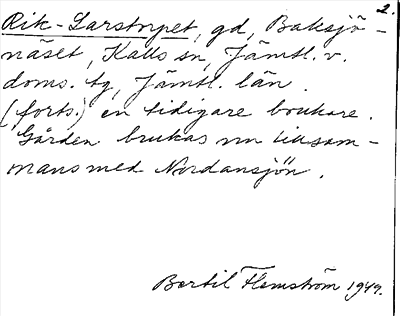 2.
Rik-Larstorpet, gd, Baksjö-
näset, Kalls sn, Jämtl. v.
doms. tg, Jämtl. län.
(forts.) en tidigare brukare.
Gården brukas nu tillsam-
mans med Nordansjön.
Bertil Flemström 1949.